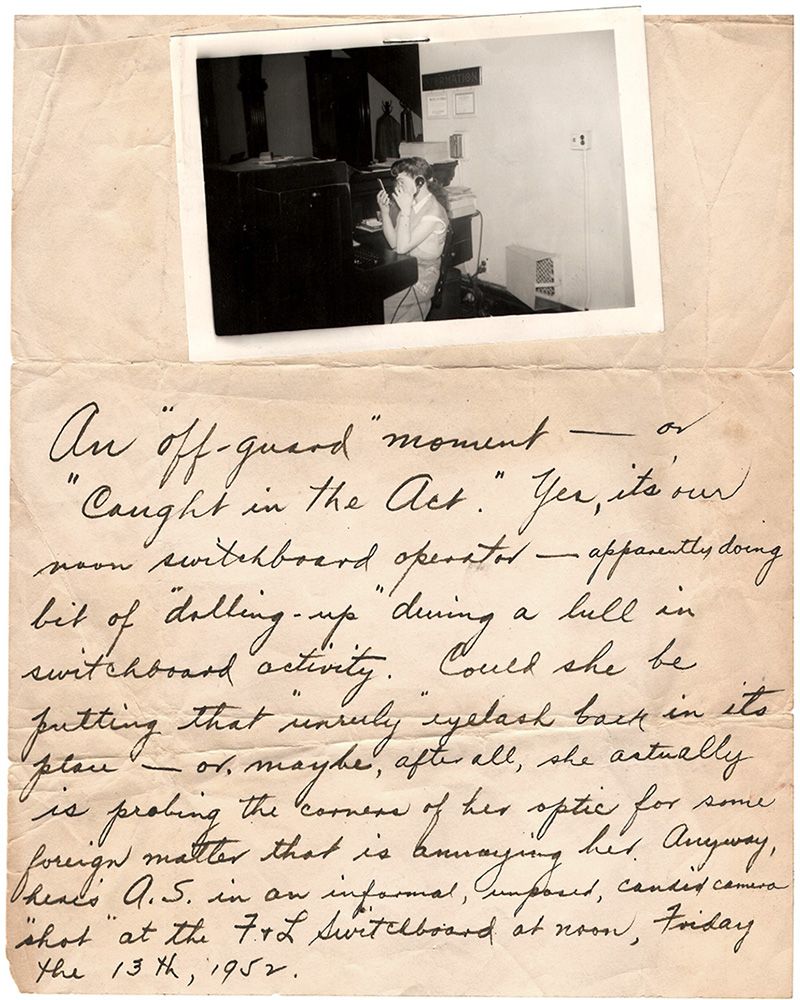 RMATION
An "off-guard" moment — or
"Caught in the Act." Yes, it's our
noon switchboard operator — apparently doing
bit of "dolling-up" during a lull in
switchboard activity. Could she be
putting that "unruly" eyelash back in its
place — or, maybe, after all, she actually
is probing the corners of her optic for some
foreign matter that is annoying her. Anyway,
here's A.S. in an informal, unposed, candid camera
"shot" at the F+L Switchboard at noon, Friday
the 13th, 1952.